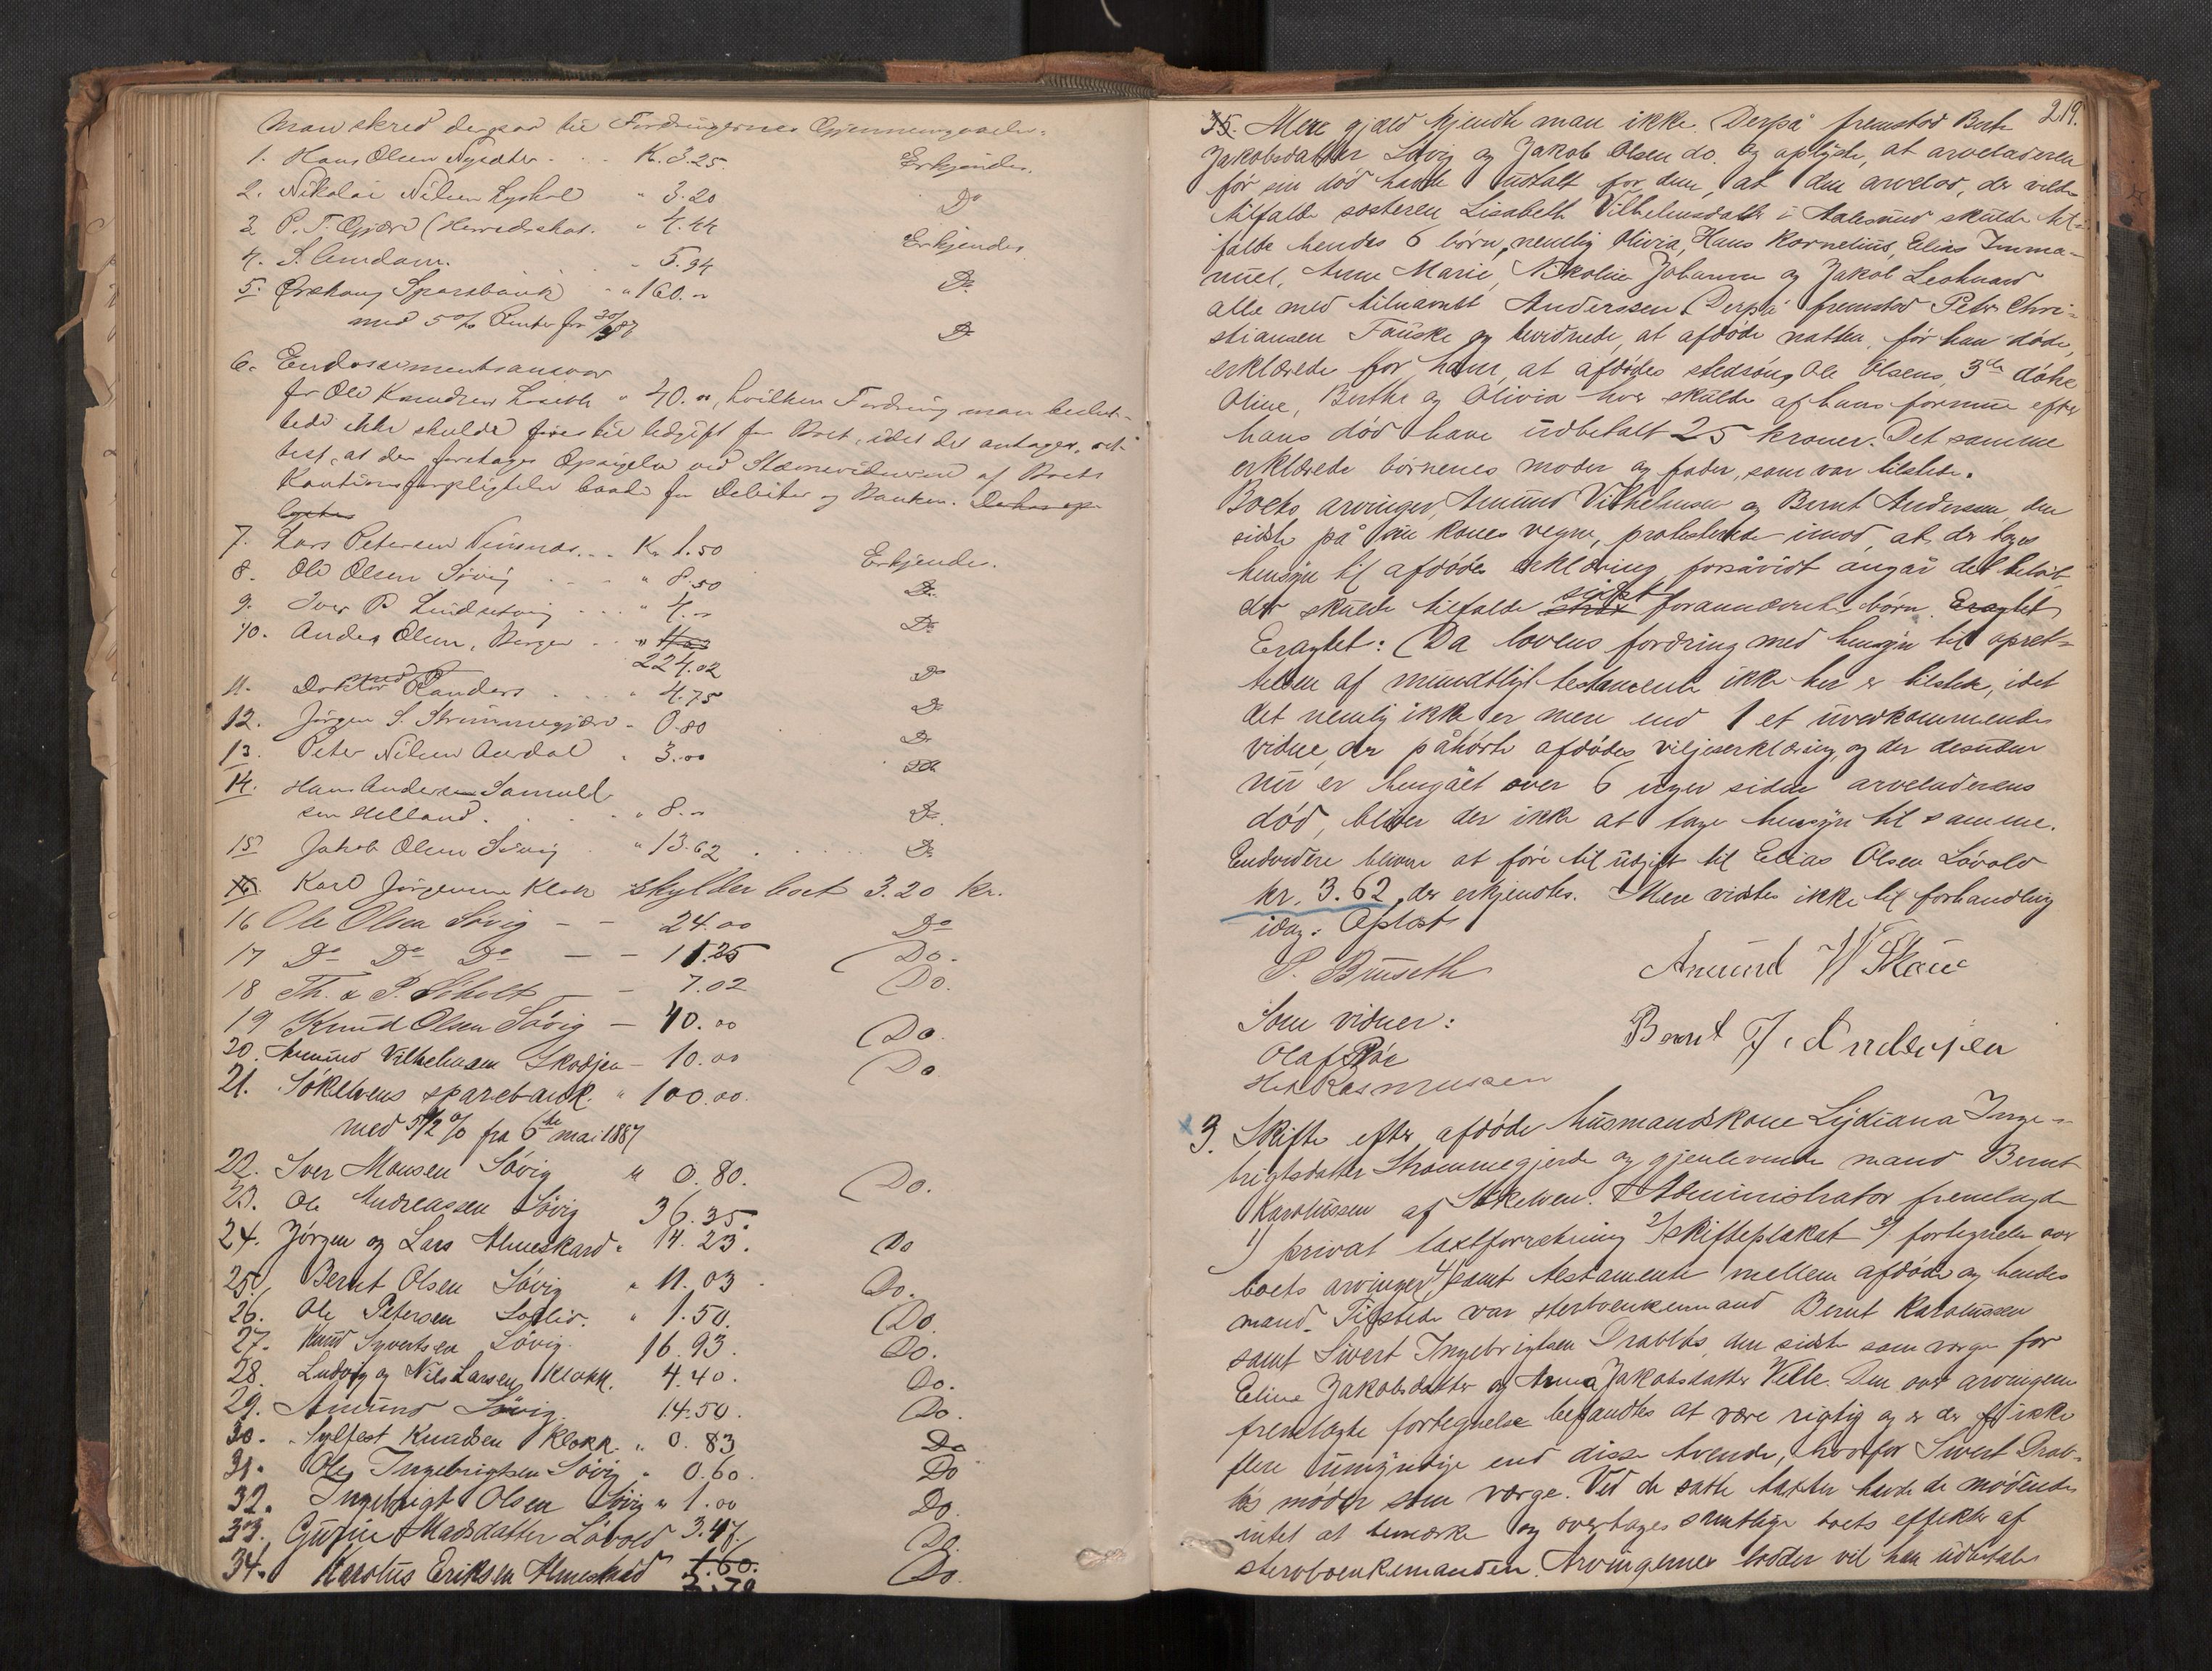 Man skred derpaa til Fordringernes Gjennemgaaelse.
1. Hans Olsen Nysæter . . . Kr. 3.25. Erkjendes.
2. Nikolai Nilsen Lyshol " 3.20 Do
3. P. T. Gjære (Herredskas. " 4.44 Erkjendes
4. S. Amdam. " 5.94 Do
5. Ørskoug Sparebank " 160.„
med 5 % Renter fra 30/ 87 Do
6. Endossementsansvar
for Ole Knudsen " 40.„, hvilken Fordring man beslut-
tede ikke skulde føres til Udgift for Boet, idet det antages, at
test, at der foretages Opsigelse ved Stævnevidnerne af Boets
Kautionsforpligtelse baade for Debitor og Banken.
7. Lars Petersen . . . Kr. 1.50 Erkjendes.
8. Ole Olsen Søvig . . . " 8.50 Do
9. Iver P. Lindsetvig . . . " 4.„ Do
10. Anders Olsen, Berger . . "
224.02 Do
11. Doktor Randers . . . " 4.75 Do
12. Jørgen S. Strømmegjære - 0.80 Do
13. Peter Nilsen Aurdal " 3.00
14. Hans Andersen Samuel-
sen Helland . . . " 8.„ Do
15 Jakob Olsen Søvig " 13.62 . . . Do
Karl Jørgensen Klok skylder boet 3.20 kr.
16 Ole Olsen Søvig - - 24.00 Do
17 Do Do Do - - 11.25 Do.
18 Th. & P. Siholt - - 7.02 Do.
19 Knud Olsen Søvig - 40.00 Do.
20. Amund Vilhelmsen Skodjen - 10.00 Do
21. Søkelvens sparebank. " 100.00.
med 5 1/2 % fra 6te mai 1887
22. Iver Monsen Søvig " 0.80. Do.
23. Ole Andreassen Søvig 36.35.
24. Jørgen og Lars Almeskard " 14.23. Do
25. Bernt Olsen Søvig " 11.03. Do.
26. Ole Petersen " 1.50. Do
27. Knud Syvertsen Søvig. 16.93. Do.
28. Ludvig og Nils Larsen Klokk. 4.40. Do.
29. Amund Søvig. 14.50. Do.
30. Sylfest Knudsen Klokk. " 0.83 Do
31. Ole Ingebrigtsen Søvig " 0.60. Do
32. Ingebrigt Olsen Søvig " 1.00 Do.
33. Gurine Madsdatter Løvold 3.47. Do.
34. Karolus Eriksen Almeskard " 1.60. Do.
219.
35. Mere gjæld kjendte man ikke. Derpå fremstod Berte
Jakobsdatter Søvig og Jakob Olsen do. og oplyste, at arveladeren
før sin död havde udtalt for dem, at den arvelod, der vilde
tilfalde søsteren Lisabeth Vilhelmsdatter i Aalesund skulde til-
falde hendes 6 børn, nemlig Olivia, Hans Kornelius, Elias Imma-
nuel, Anne Marie, Nikoline Johanna og Jakob Leohnard
alle med tilnavnet Anderssen. Derpå fremstod Peter Chri-
stiansen Fauske og bevidnede, at afdøde natten, før han døde,
erklærede for ham, at afdødes stedsøns Ole Olsens 3de døtre
Oline, Berthe og Olivia hver skulde af hans formue efter
hans død have udbetalt 25 kroner. Det samme
erklærede børnenes moder og fader, som var tilstede.
Boets arvinger, Amund Vilhelmsen og Bernt Andersen, den
sidste på sin kones vegne, protesterede imod, at der toges
hensyn til afdødes erklæring, forsåvidt angår det beløb,
der skulde tilfalde sidst forannævnte børn. Eragtet
Eragtet: Da lovens fordring med hensyn til opret-
telsen af mundtligt testamente ikke her er tilstede, idet
det nemlig ikke er mere end 1 et uvedkommende
vidne, der påhørte afdødes viljeserklæring, og der desuden
nu er hengået over 6 uger siden arveladerens
død, bliver der ikke at tage hensyn til samme.
Endvidere bliver at føre til udgift til Elias Olsen Løvold
kr. 3.62, der erkjendtes. Mere vidstes ikke til forhandling
idag. Oplæst
P. Buseth Amund W Skaue
Som vidner: Bernt J. Andersen
Olaf Røe
H.K. Rasmussen
3. Skifte efter afdøde husmandskone Lydiana Inge-
brigtsdatter Strømmegjerde og gjenlevende mand Bernt
Karolussen af Søkelven. Administrator fremlagde
1) privat taxtforretning 2) skifteplakat 3) fortegnelse over
boets arvinger 4) samt testamente mellem afdøde og hendes
mand. Tilstede var sterboenkemand Bernt Karolussen
samt Sivert Ingebrigtsen Drabløs, den sidste som verge for
Eline Jakobsdatter og Anna Jakobsdatter Velle. Den over arvingerne
fremlagte fortegnelse befandtes at være rigtig og er der ikke
flere umyndige end disse tvende, hvorfor Sivert Drab-
løs møder som værge. Ved de satte taxter havde de mødende
intet at bemærke og overtages samtlige boets effekter af
sterboenkemanden. Arvingernes lodder vil han udbetale